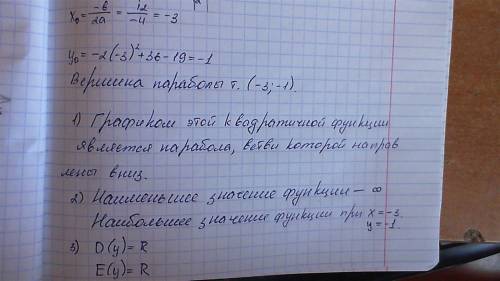 x₀ = -b/2a = 12/-4 = -3
y₀ = -2(-3)²+36-19=-1
Вершина параболы т. (-3;-1).
1) Графиком этой квадратичной функции
является парабола, ветви которой направ
лены вниз.
2) Наименьшее значение функции - ∞
Наибольшее значение функции при x=-3.
y=-1.
3) D(y)= R
E(y)= R